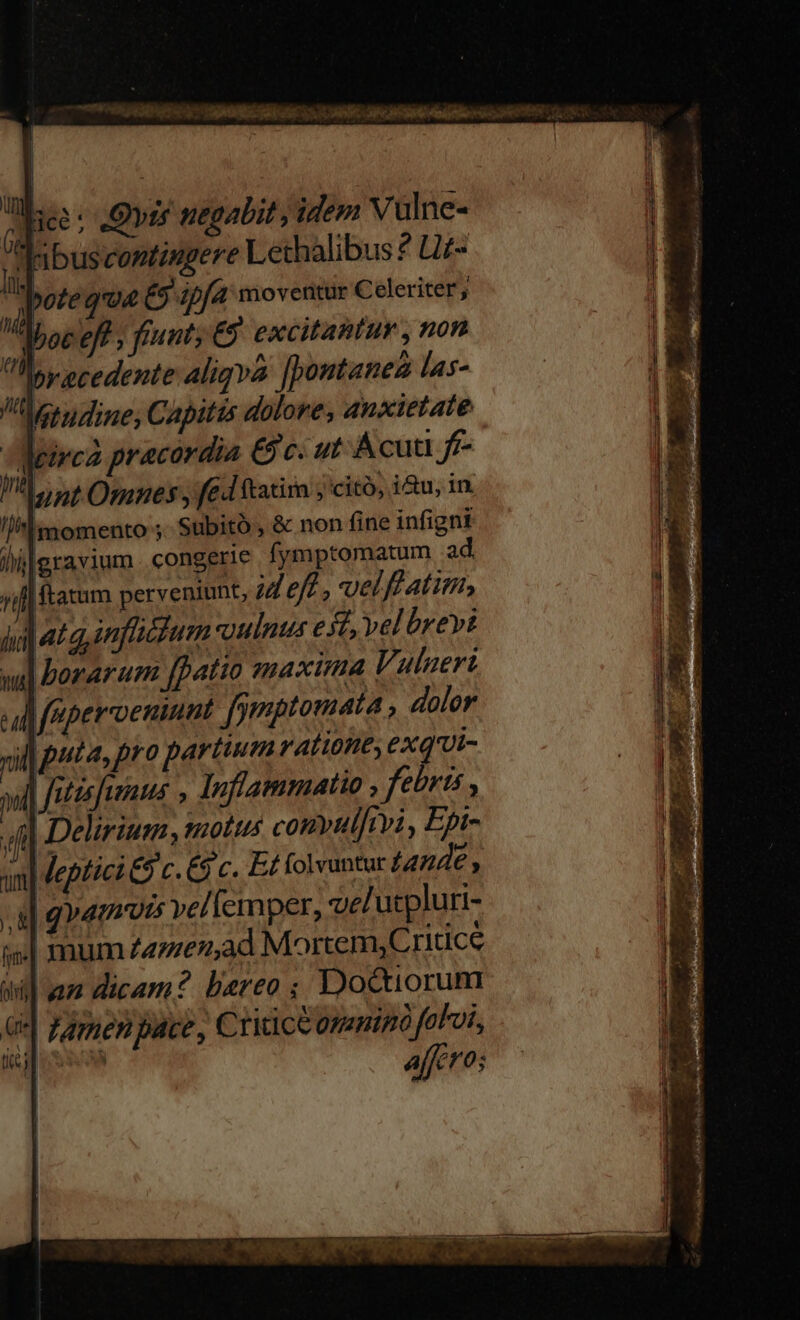 licè; Qvis negabit, idem Vulne-
ribus contingere Lethalibus? Ut-
pote qvæ & ipſa moventur Celeriter,
hoc eſt, fiunt, & excitantur, non
præcedente aliqvâ ſpontaneâ las-
ſitudine, Capitis dolore, anxietate
circà præcordia &c. ut Acuti fi-
unt Omnes, ſed ſtatim, citò, ictu, in
momento; Subitò, & non ſine inſigni
gravium congerie ſymptomatum ad
ſtatum perveniunt, id eſt, vel ſtatim,
atq; inflictum vulnus eſt, vel brevi
horarum ſpatio maxima Vulneri
ſuperveniunt ſymptomata, dolor
puta, pro partium ratione, exqvi-
ſitisſimus, Inflammatio, febris,
Delirium, motus convulſivi, Epi-
leptici &c. &c. Et ſolvuntur tandē,
qvamvis vel ſemper, vel utpluri-
mum tamen, ad Mortem, Criticè
an dicam? hæreo; Doctiorum
tamen pace, Criticè omninò ſolvi,
aſſero;